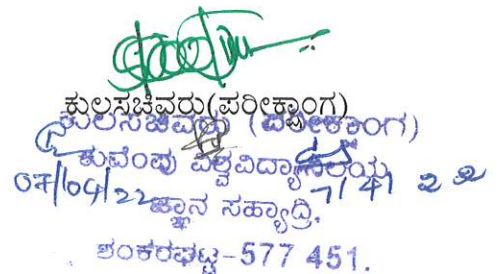 ಕುಲಸಚಿವರು(ಪರೀಕ್ಷಾಂಗ)
ಕುಲಸಚಿವರು (ಪರೀಕ್ಷಾಂಗ)
ಕುವೆಂಪು ವಿಶ್ವವಿದ್ಯಾಲಯ
07/04/22 7/4/22
ಜ್ಞಾನ ಸಹ್ಯಾದ್ರಿ,
ಶಂಕರಘಟ್ಟ-577 451.